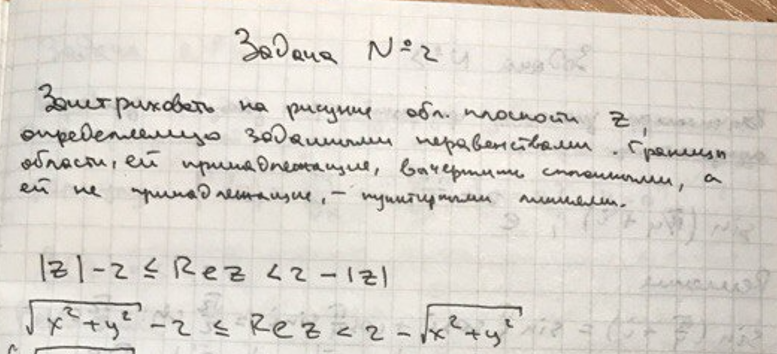 Задача №2
Заштриховать на рисунке обл. плоскости Z,
определяемую заданными неравенствами. Границы
области, ей принадлежащие, вычертить сплошными, а
ей не принадлежащие, – пунктирными линиями.
|Z| - 2 ≤ Re Z < 2 - |Z|
√(x² + y²) - 2 ≤ Re Z < 2 - √(x² + y²)